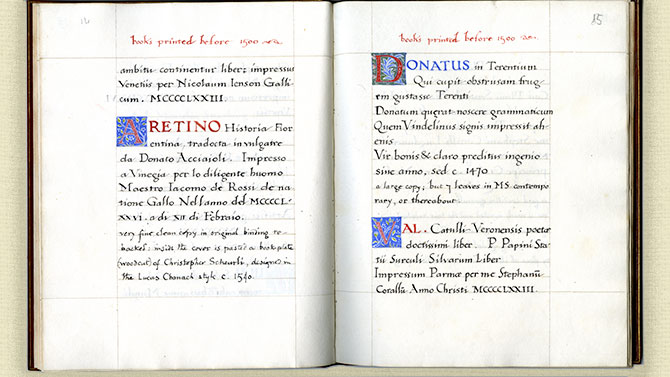 14
books printed before 1500
ambitu continentur liber; impressus
Venetiis per Nicolaum Ienson Galli
cum. MCCCCLXXIII.
ARETINO Historia Fior
entina, tradocta in vulgare
da Donato Acciaioli. Impresso
a Vinegia per lo diligente huomo
Maestro Iacomo de Rossi de na
tione Gallo Nell'anno del MCCCCL-
XXVI. a di XII di Febraio.
very fine clean copy in original binding re
backed: inside the cover is pasted a book-plate
(woodcut) of Christopher Scheurli, designed in
the Lucas Chanach style c. 1540.
15
books printed before 1500
DONATUS in Terentium
Qui cupit obstrusam frug
em gustasse Terenti
Donatum querat noscere grammaticum
Quem Vindelinus signis impressit ah-
enis
Vir bonis & claro preditus ingenio
sine anno, sed c. 1470
a large copy; but 7 leaves in MS contempo
rary, or thereabout
VAL. Catulli Veronensis poetæ
doctissimi liber. P. Papini Sta
tii Surculi Silvarum Liber
Impressum Parmæ per me Stephanū
Corallū Anno Christi MCCCCLXXIII.